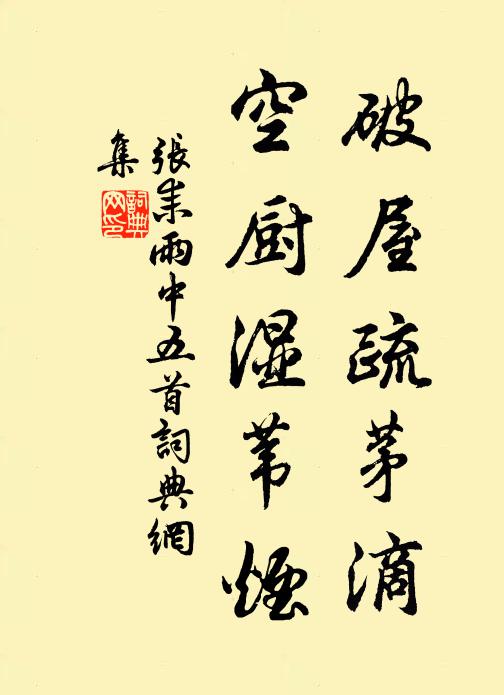 破屋疏茅滴
空厨湿苇烟
張耒雨中五首詞典網
集
詞典
网印